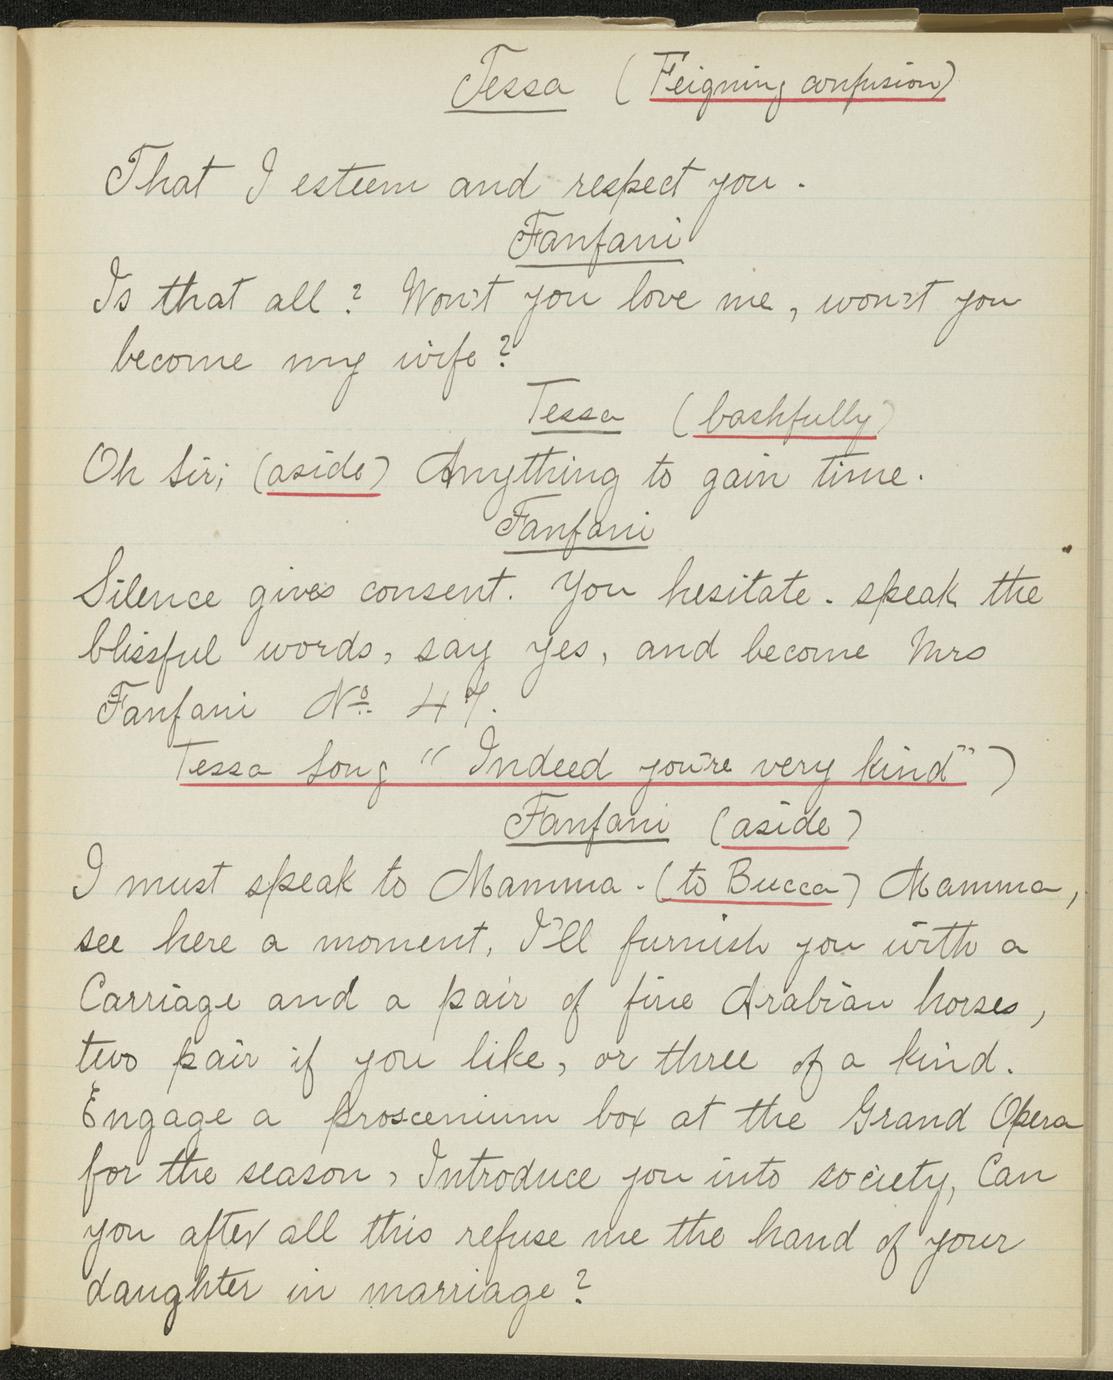 Tessa (Feigning confusion)
That I esteem and respect you.
Fanfani
Is that all? Won't you love me, won't you
become my wife?
Tessa (bashfully)
Oh Sir; (aside) Anything to gain time.
Fanfani
Silence gives consent. You hesitate. speak the
blissful words, say yes, and become Mrs
Fanfani No. 47.
Tessa Song "Indeed you're very kind")
Fanfani (aside)
I must speak to Mamma. (to Bucca) Mamma,
see here a moment, I'll furnish you with a
Carriage and a pair of fine Arabian horses,
two pair if you like, or three of a kind.
Engage a proscenium box at the Grand Opera
for the season, Introduce you into society, Can
you after all this refuse me the hand of your
daughter in marriage?